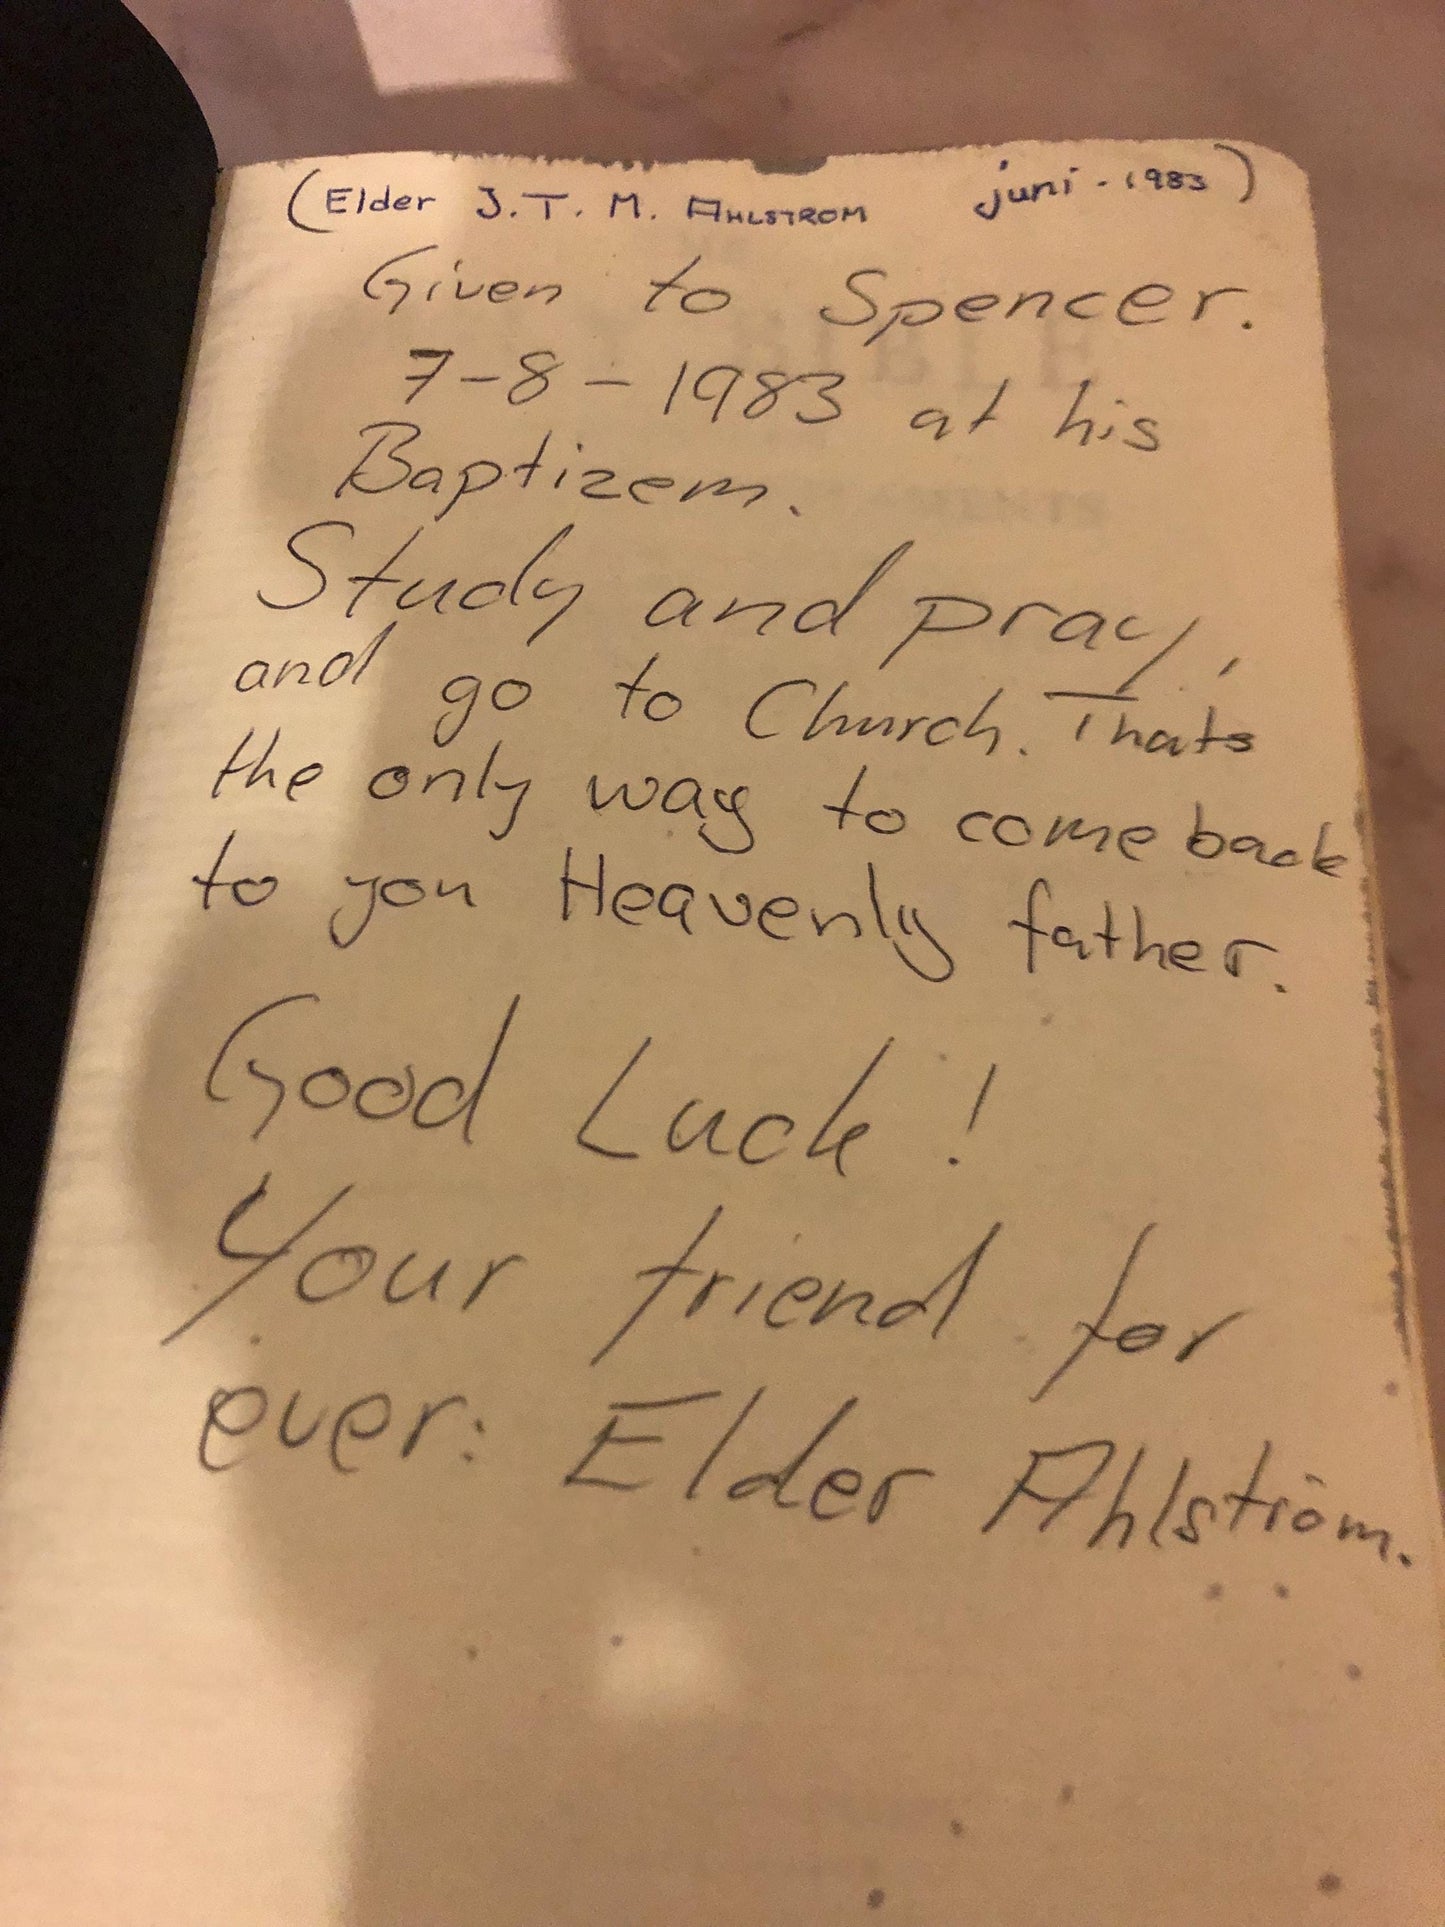 (Elder J. T. M. AHLSTROM juni - 1983)
Given to Spencer.
7-8-1983 at his
Baptizem.
Study and pray,
and go to Church. Thats
the only way to come back
to you Heavenly father.
Good Luck!
Your friend for
ever: Elder Ahlström.